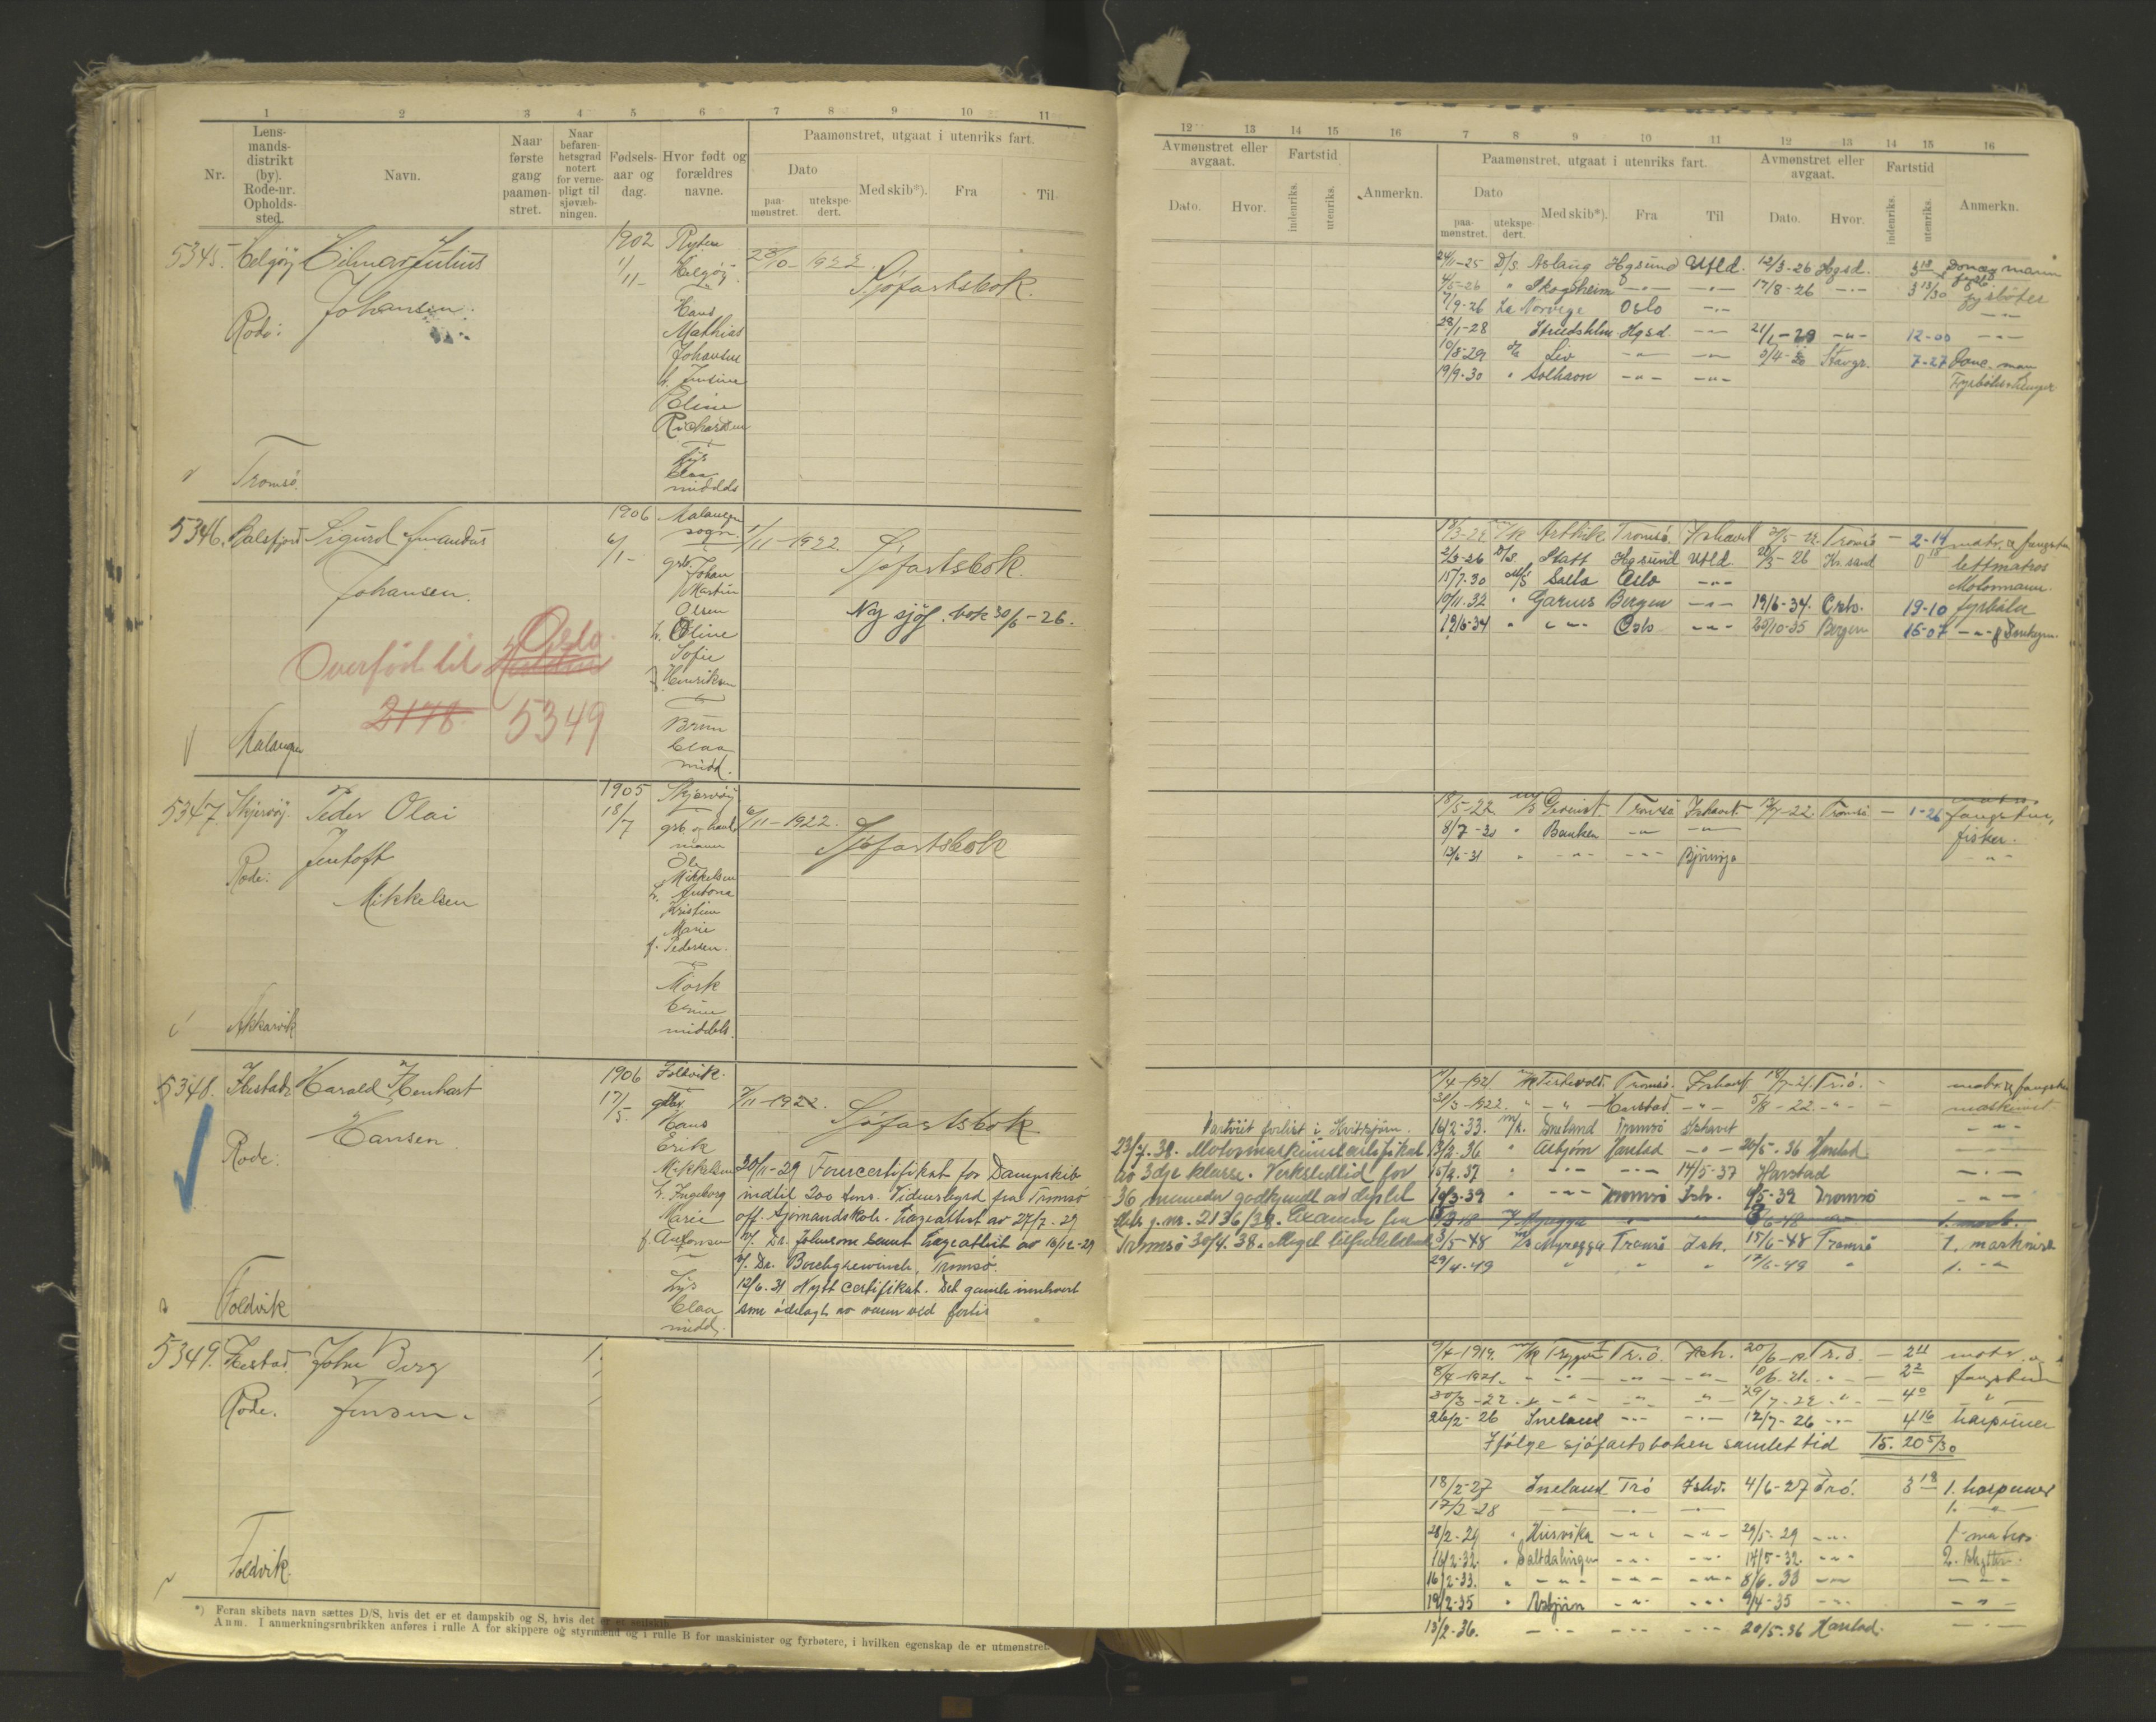 1 2 3 4 5 6 7 8 9 10 11
Nr.
Lens-
mands-
distrikt
(by).
Rode-nr.
Opholds-
sted.
Navn.
Naar
første
gang
paamøn-
stret.
Naar
befaren-
hetsgrad
notert
for verne-
pligt til
sjøvæb-
ningen.
Fødsels-
aar og
dag.
Hvor født og
forældres
navne.
Paamønstret, utgaat i utenriks fart.
Dato
paa-
mønstret.
utekspe-
dert.
Med skib*).
Fra
Til
5345. Helgøy Hilmar Julius
Johansen.
Rode:
Tromsø
1902
1/11
Helgøy
Hans
Mathias
Johansen
h. Jensine
Eline
Richardsen
Lys
blaa
middels
23/10 - 1922.
Sjøfartsbok.
5346. Balsfjord Sigurd Amandus
Johansen.
Malangen
1906
6/1 -
Malangen
sogn.
grb. Johan
Martin
Olsen
h. Oline
Sofie
f. Henriksen
Brun
blaa
midd.
1/11 - 1922.
Sjøfartsbok.
Ny sjøf. bok 30/6 - 26.
Overført til Halden Oslo
2178 5349
5347. Skjervøy. Peder Olai
Jentoft
Mikkelsen
Rode:
Akkarvik
1905
18/7
Skjervøy
grb. og
Ole
Mikkelsen
h. Antona
Kristine
Marie
f. Pedersen.
Mørk
brune
middels.
6/11 - 1922.
Sjøfartsbok
5348. Ibestad Harald Henhart
Hansen
Rode:
Foldvik
1906
17/5.
Foldvik.
gbr.
Hans
Erik
Mikkelsen
h. Ingeborg
Marie
f. Antonsen
Lys
blaa
midd.
7/11 - 1922.
Sjøfartsbok
30/11 - 29 Førercertifikat for Dampskib
indtil 200 tons. Vidnesbyrd fra Tromsø
off. Sjømandskole. Lægeattest av 27/7. 29
v/. Dr. Johnsons samt Lægeattest av 16/12 - 29
v/. Dr. Borchgrewinck, Tromsø.
12/6. 31 Nytt certifikat. Det gamle innlevert
som ødelagt av vann ved forlis
5349. Ibestad John Berg
Jensen.
Rode.
Foldvik.
*) Foran skibets navn sættes D/S, hvis det er et dampskib og S, hvis det er et seilskib.
Anm. I anmerkningsrubrikken anføres i rulle A for skippere og styrmænd og i rulle B for maskinister og fyrbøtere, i hvilken egenskap de er utmønstret.
12 13 14 15 16 7 8 9 10 11 12 13 14 15 16
Avmønstret eller
avgaat.
Dato. Hvor.
Fartstid
indenriks. utenriks.
Anmerkn.
Paamønstret, utgaat i utenriks fart.
Dato
paa-
mønstret.
utekspe-
dert.
Med skib*). Fra Til
Avmønstret eller
avgaat.
Dato. Hvor.
Fartstid
indenriks. utenriks.
Anmerkn.
24/11-25 D/S. Aslaug Hgsund Utld. 12/3-26 Hgsd. 3 18 Donkeymann
4/5-26 " Skogsheim -"- -"- 17/8-26 -"- 3 13/30 fyrbøter
7/9-26 La Norvege Oslo -"- -"-
28/1-28 Hgsd. -"- 21/1-29 -"- 12-00 -"-
10/8-29 Liv -"- -"- 5/4-30 Stavgr. 7-27
19/9-30 " Solhavn -"- -"-
18/3-22 M/k Arthik Tromsø. Ishavet 31/5-22. Tromsø - 2-14 matr. & fangstm
2/3-26 D/S. Statt Hgsund Utld. Kr.sand 0 18 lettmatros
15/7.30 M/S Oslo -"- Motormann.
10/11.32 " Garnes Bergen -"- 19/6-34. Oslo. 19-10 fyrbøter
19/6-34 " -"- Oslo -"- 25/10-35 Bergen 16-07 -"- & Donkeym.
18/5-22 Tromsø Ishavet. -22. Tromsø - 1-26 fangstm,
8/7-30 " Banken -"- -"- fisker.
12/6-31 " -"- -"- Bjørnøya -"-
/4-1921. M/k Isfuld. Tromsø. Ishavet 18/7-21. Tr.ø. - matr. & fangstm
30/3-1922. " -"- Harstad -"- 5/8-22. -"- maskinist
Partvist forlist i Kvitsjøen. 16/2-33. M/k. Ineland Tromsø Ishavet -"-
23/7.38. Motormaskinistcertifikat 13/2.36 " Asbjørn Harstad -"- 20/5.36 Harstad
av 3dje klasse. Verkstedtid for 15/2.37 " -"- -"- 14/5-37 Harstad -"-
36 maaneder godkjendt av dep. til 10/3-39 " -"- Tromsø Ish. 9/5-39 Tromsø -"-
g.nr. 2136/38. Examen fra
Tromsø 30/4.38. Meget tilfredsstillende 3/5-48 M/S Myregga Tromsø Ish. 15/6-48 Tromsø 1. maskinist
29/4-49 " " " 17/6-49 " 1. -"-
9/4-1919. M/k Trygve I Tr.ø. Ish. 20/6-19 Tr.ø. - 2 11 matr. og
8/4-1921. " -"- -"- -"- 10/6.21. -"- - 2 2 fangstm
30/3-22. " -"- -"- -"- 29/7-22. " - 4 0 -"-
26/2-26 Ineland -"- -"- 12/7-26 -"- 4 16 harpuner
Ifølge sjøfartsboken samlet tid 15. 20 5/30
18/2-27 Ineland Trø Ishv. 4/6-27 Trø. 3 18 1. harpuner
17/2-28 -"- -"- -"- 1. -"-
28/2-29 " Husvika -"- -"- 29/5-29 -"- 1. matros.
16/2-32. " Saltdalingen -"- -"- 14/5-32. -"- 2. skytter.
16/2-33. " -"- -"- -"- 8/6.33 -"- -"-
19/2-35 " Asbjørn -"- -"- 9/4-35 -"- -"-
13/2-36. -"- -"- -"- 20/5-36 Harstad. -"-